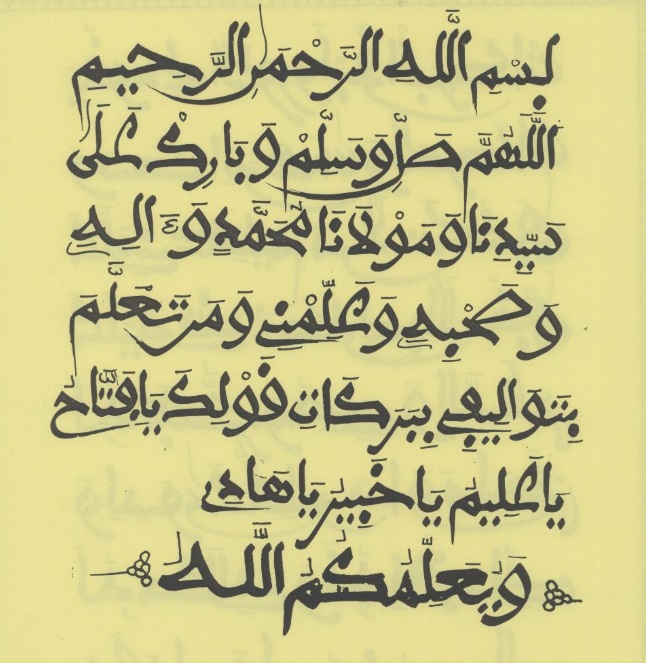 بِسْمِ اللَّهِ الرَّحْمَنِ الرَّحِيمِ
اللَّهُمَّ صَلِّ وَسَلِّمْ وَبَارِكْ عَلَى
سَيِّدِنَا وَمَوْلَانَا مُحَمَّدٍ وَءَالِهِ
وَصَحْبِهِ وَعَلِّمْنِي وَمَن تَعَلَّمَ
بِتَوَالِيفِي بِبَرَكَاتِ قَوْلِكَ يَا فَتَّاحُ
يَا عَلِيمُ يَا خَبِيرُ يَا هَادِي
وَيُعَلِّمُكُمُ اللَّهُ